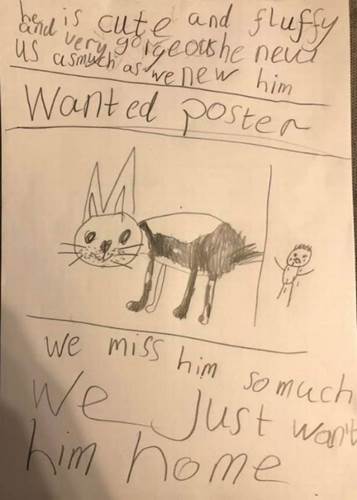 he is cute and fluffy
and very gorgeous he new
us asmuch as we new him
Wanted poster
we miss him so much
We Just want
him home